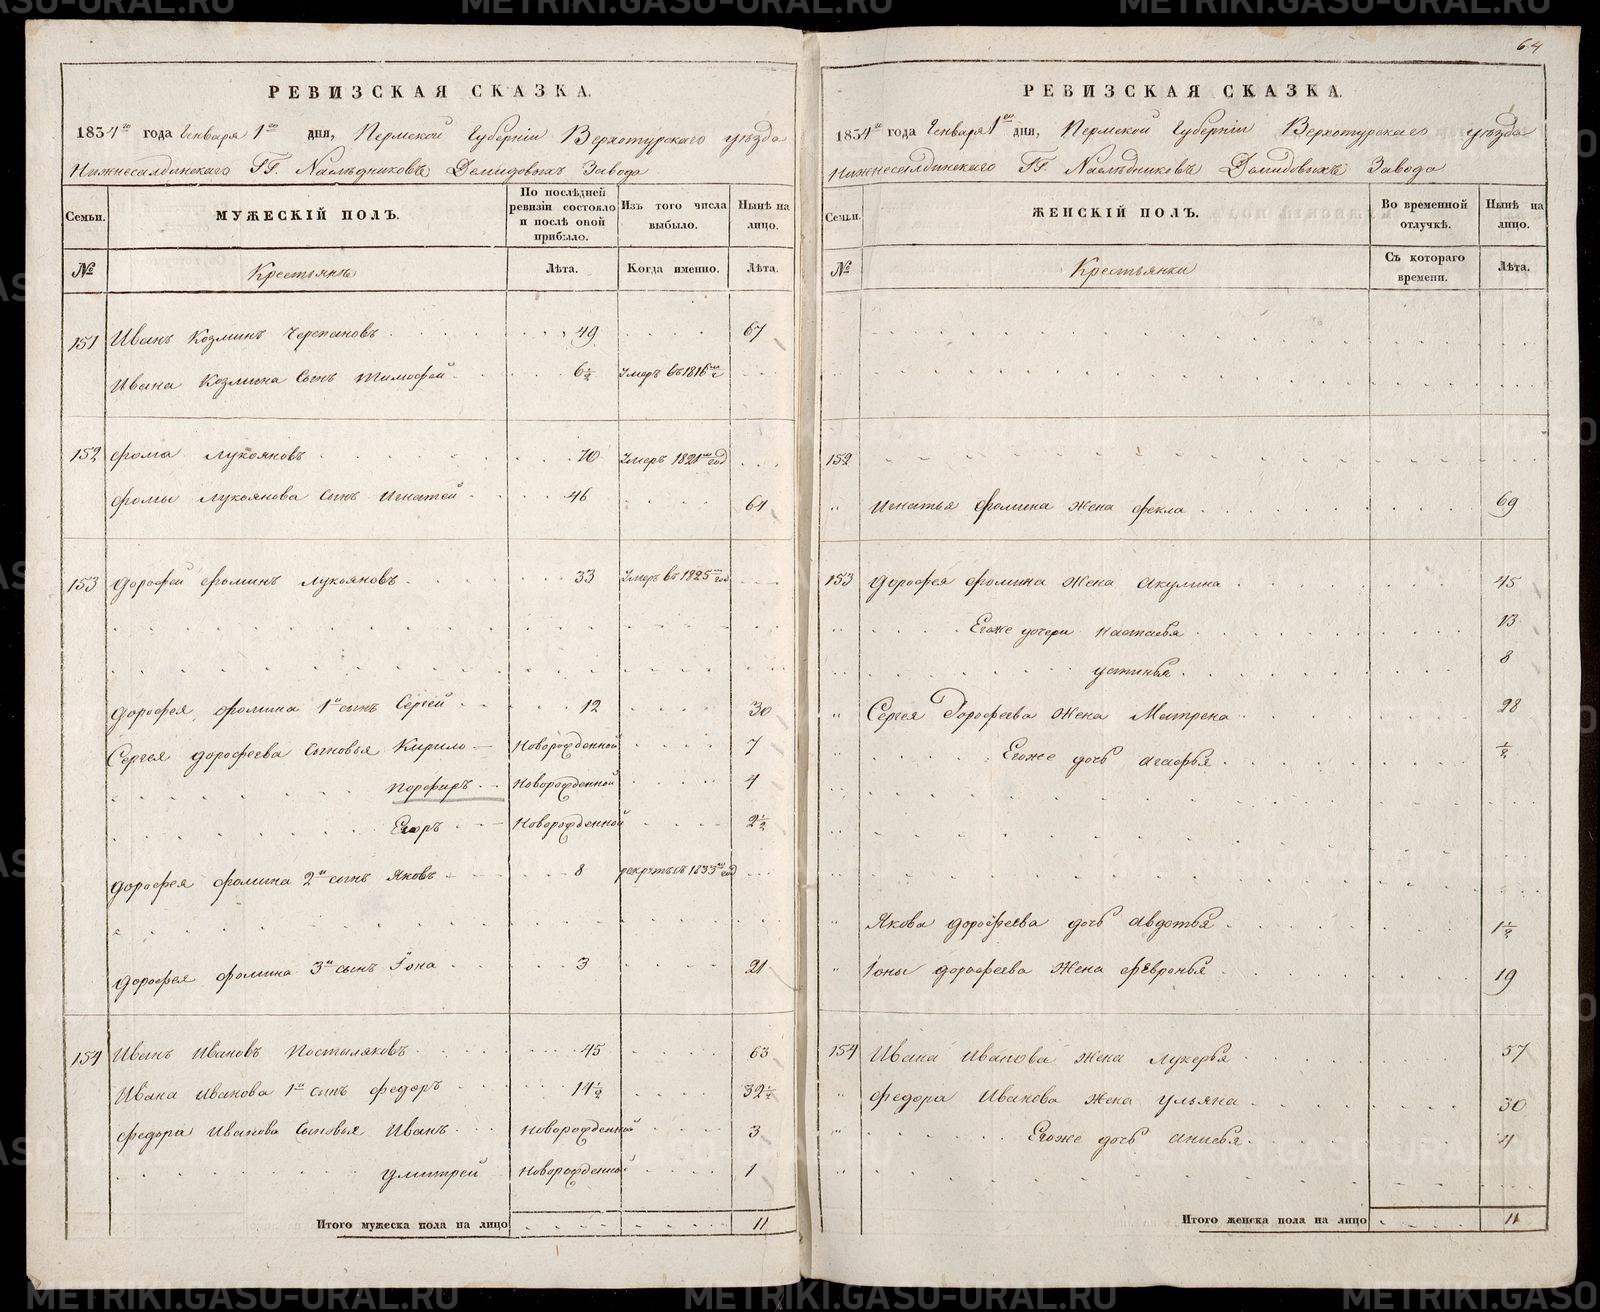 64
РЕВИЗСКАЯ СКАЗКА.
1834го года Генваря 1го дня, Пермской Губернiи Верхотурскаго уѣзда
Нижнесалдинскаго ГГ. Наслѣдниковъ Демидовыхъ Завода
Семьи. МУЖЕСКIЙ ПОЛЪ. По послѣдней ревизiи состояло и послѣ оной прибыло. Изъ того числа выбыло. Нынѣ на лицо.
№ Крестьянъ Лѣта. Когда именно. Лѣта.
151 Иванъ Козминъ Черепановъ 49 67
Ивана Козмина сынъ Тимофей 6½ умеръ въ 1816мъ г
152 Фома Лукояновъ 70 умеръ 1821мъ год
Фомы Лукоянова сынъ Игнатей 46 64
153 Дорофей Фоминъ Лукояновъ 33 умеръ въ 1825мъ год
Дорофея Фомина 1й сынъ Сергей 12 30
Сергея Дорофеева сыновья Кирило Новорожденной 7
Порфиръ Новорожденной 4
Егоръ Новорожденной 2½
Дорофея Фомина 2й сынъ Яковъ 8 рекрутъ съ 1833го год
Дорофея Фомина 3й сынъ Iона 3 21
154 Иванъ Ивановъ Постыляковъ 45 63
Ивана Иванова 1й сынъ Федоръ 14½ 32½
Федора Иванова сыновья Иванъ Новорожденной 3
Дмитрей Новорожденной 1
Итого мужеска пола на лицо 11
РЕВИЗСКАЯ СКАЗКА.
1834го года Генваря 1го дня, Пермской Губернiи Верхотурскаго уѣзда
Нижнесалдинскаго ГГ. Наслѣдниковъ Демидовыхъ Завода
Семьи. ЖЕНСКIЙ ПОЛЪ. Во временной отлучкѣ. Нынѣ на лицо.
№ Крестьянки Съ котораго времени. Лѣта.
152
" Игнатья Фомина жена Фекла 69
153 Дорофея Фомина жена Акулина 45
Егоже дочери Настасья 13
Устинья 8
" Сергея Дорофеева жена Матрена 28
Егоже дочь Агафья ½
" Якова Дорофеева дочь Авдотья 1½
" Iоны Дорофеева жена Февронья 19
154 Ивана Иванова жена Лукерья 57
" Федора Иванова жена Ульяна 30
Егоже дочь Анисья 4
Итого женска пола на лицо 11
METRIKI.GASO-URAL.RU